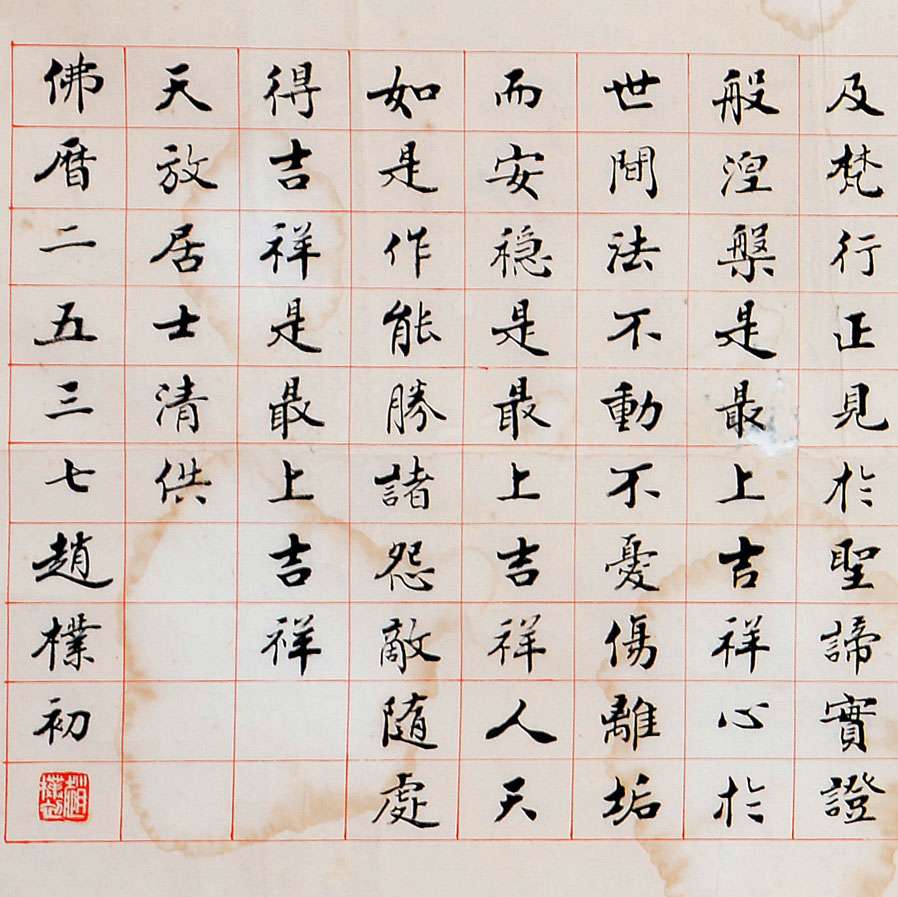 及梵行正見於聖諦實證
般涅槃是最上吉祥心於
世間法不動不憂傷離垢
而安穩是最上吉祥人天
如是作能勝諸怨敵隨處
得吉祥是最上吉祥
天放居士清供
佛曆二五三七趙樸初
趙樸初